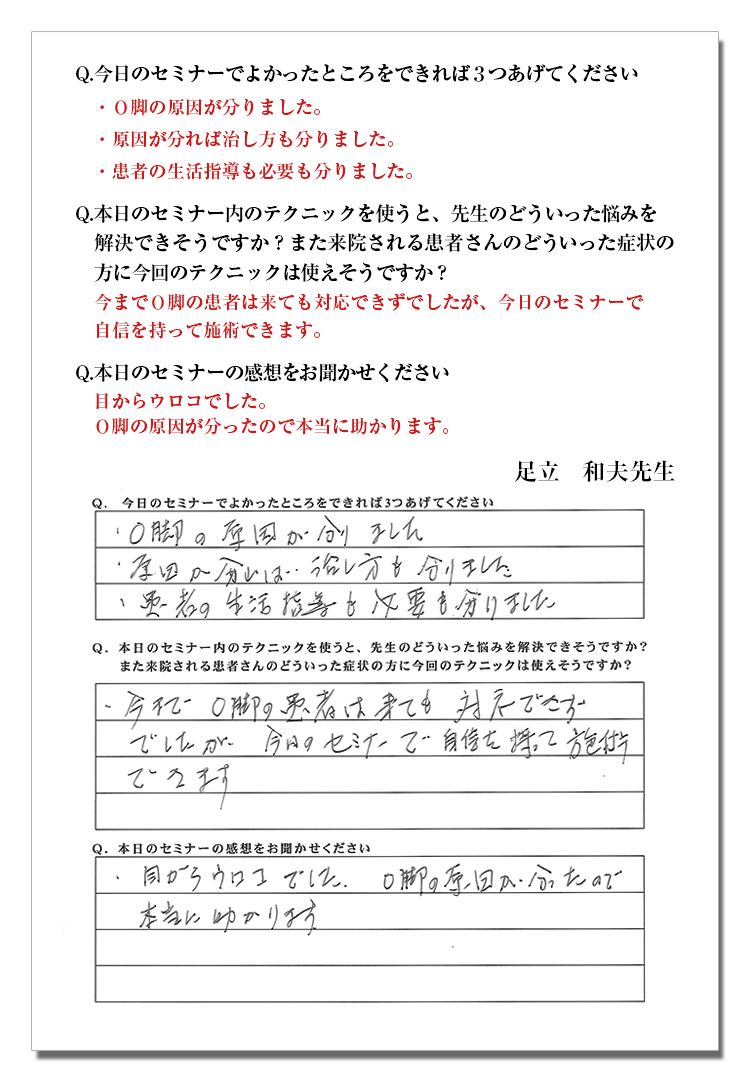 Q.今日のセミナーでよかったところをできれば３つあげてください
・Ｏ脚の原因が分りました。
・原因が分れば治し方も分りました。
・患者の生活指導も必要も分りました。
Q.本日のセミナー内のテクニックを使うと、先生のどういった悩みを
解決できそうですか？また来院される患者さんのどういった症状の
方に今回のテクニックは使えそうですか？
今までＯ脚の患者は来ても対応できずでしたが、今日のセミナーで
自信を持って施術できます。
Q.本日のセミナーの感想をお聞かせください
目からウロコでした。
Ｏ脚の原因が分ったので本当に助かります。
足立　和夫先生
Q. 今日のセミナーでよかったところをできれば3つあげてください
・O脚の原因が分りました
・原因が分れば治し方も分りました
・患者の生活指導も必要も分りました
Q. 本日のセミナー内のテクニックを使うと、先生のどういった悩みを解決できそうですか？
また来院される患者さんのどういった症状の方に今回のテクニックは使えそうですか？
・今までO脚の患者は来ても対応できず
でしたが 今日のセミナーで自信を持って施術
できます
Q. 本日のセミナーの感想をお聞かせください
・目からウロコでした. O脚の原因が分ったので
本当に助かります